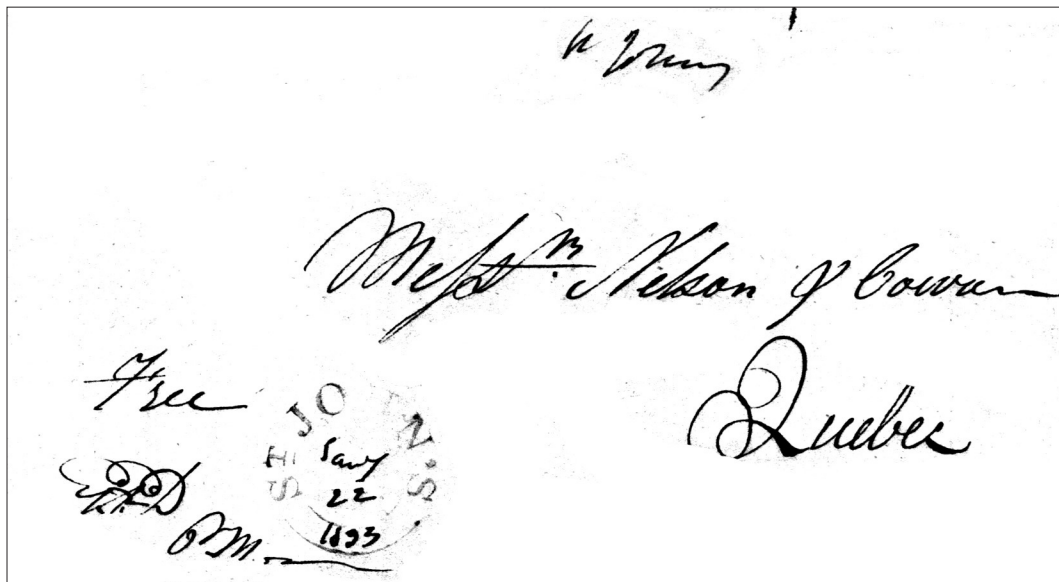 Mess^rs. Nelson & Cowan
Quebec
Free
ST JO N'S.
Jany
22
1833
P.M.